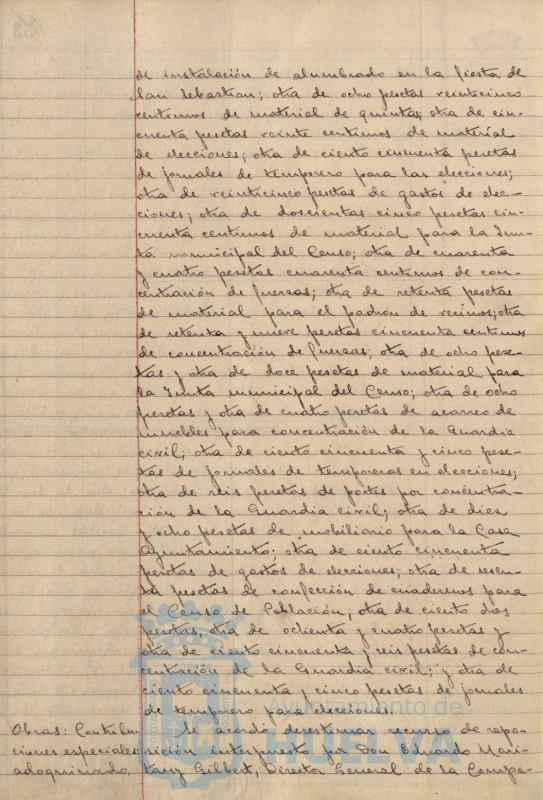 de instalación de alumbrado en la fiesta de
San Sebastian; otra de ocho pesetas veinticinco
centimos de material de quintas; otra de cin-
cuenta pesetas veinte centimos de material
de elecciones; otra de ciento cincuenta pesetas
de jornales de temporero para las elecciones;
otra de veinticinco pesetas de gastos de elec-
ciones; otra de doscientas cinco pesetas cin-
cuenta centimos de material para la Jun-
ta municipal del Censo; otra de cuarenta
y cuatro pesetas cuarenta centimos de con-
centración de fuerzas; otra de setenta pesetas
de material para el padrón de vecinos; otra
de setenta y nueve pesetas cincuenta centimos
de concentración de fuerzas; otra de ocho pese-
tas y otra de doce pesetas de material para
la Junta municipal del Censo; otra de ocho
pesetas y otra de cuatro pesetas de acarreo de
muebles para concentración de la Guardia
civil; otra de ciento cincuenta y cinco pese-
tas de jornales de temporeros en elecciones;
otra de seis pesetas de portes por concentra-
ción de la Guardia civil; otra de diez
y ocho pesetas de mobiliario para la Casa
Ayuntamiento; otra de ciento cincuenta
pesetas de gastos de elecciones; otra de sesen-
ta pesetas de confección de cuadernos para
el Censo de Población; otra de ciento dos
pesetas, otra de ochenta y cuatro pesetas y
otra de ciento cincuenta y seis pesetas de con-
centración de la Guardia civil; y otra de
ciento cincuenta y cinco pesetas de jornales
de temporero para elecciones.
Obras: Contribu- Se acordó desestimar recurso de repo-
ciones especiales sición interpuesto por Don Eduardo Mari-
adoquinado, tany Gilbert, Director General de la Compa-
Ayuntamiento de
HUELVA